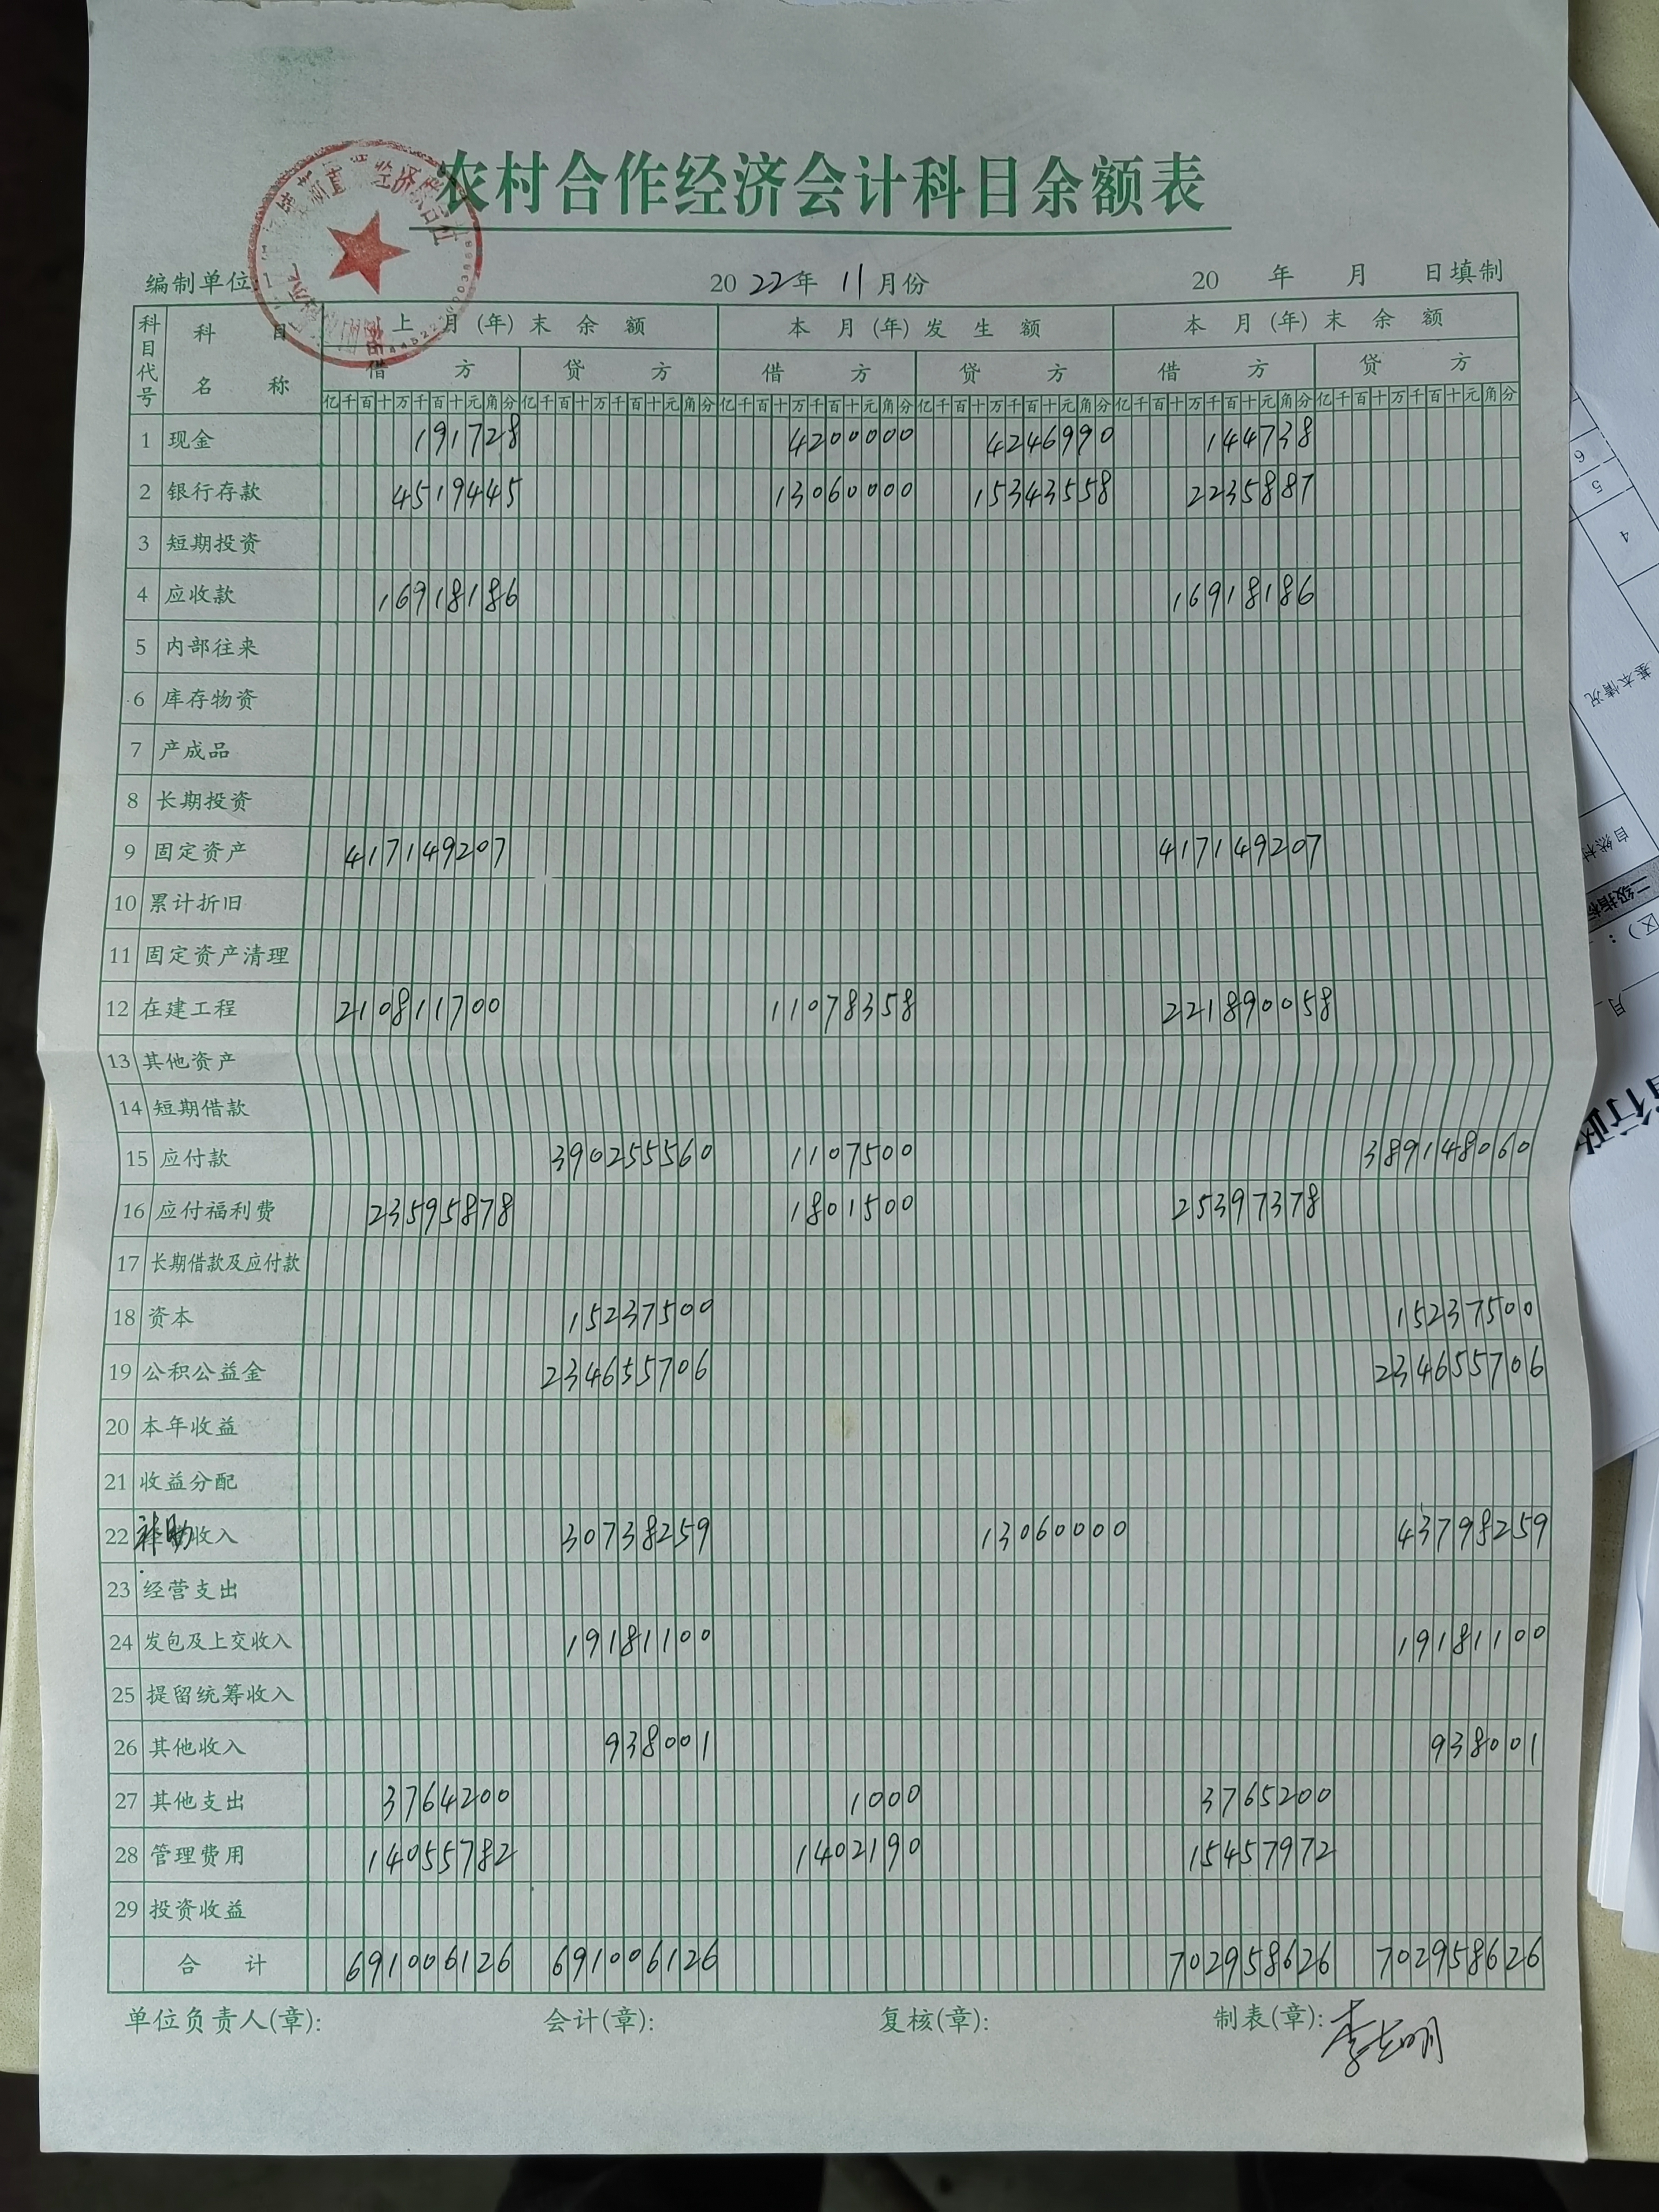 农村合作经济会计科目余额表
编制单位: 2022年11月份 20 年 月 日填制
科目代号 科目名称 上月(年)末余额 本月(年)发生额 本月(年)末余额
借方 贷方 借方 贷方 借方 贷方
亿千百十万千百十元角分 亿千百十万千百十元角分 亿千百十万千百十元角分 亿千百十万千百十元角分 亿千百十万千百十元角分 亿千百十万千百十元角分
1 现金 191728 4200000 4246990 144738
2 银行存款 4519445 13060000 15343558 2235887
3 短期投资
4 应收款 16918186 16918186
5 内部往来
6 库存物资
7 产成品
8 长期投资
9 固定资产 417149207 417149207
10 累计折旧
11 固定资产清理
12 在建工程 210811700 11078358 221890058
13 其他资产
14 短期借款
15 应付款 390255560 1107500 389148060
16 应付福利费 23595878 1801500 25397378
17 长期借款及应付款
18 资本 15237500 15237500
19 公积公益金 234655706 234655706
20 本年收益
21 收益分配
22 补助收入 30738259 13060000 43798259
23 经营支出
24 发包及上交收入 19181100 19181100
25 提留统筹收入
26 其他收入 938001 938001
27 其他支出 3764200 1000 3765200
28 管理费用 14055782 1402190 15457972
29 投资收益
合计 691006126 691006126 702958626 702958626
单位负责人(章): 会计(章): 复核(章): 制表(章):李志明
4
5
6
基本情况
自然村
二级指标
区):
月